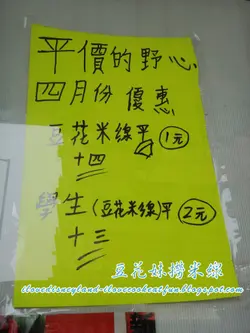 平價的野心
四月份 優惠
豆花米線平 1元
十四
學生(豆花米線)平 2元
十三
豆花妹撈米線
ilovedisneyland-ilovecookeatfun.blogspot.com